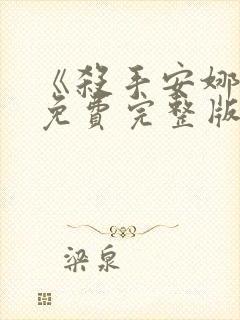 《殺手安娜
免費完整版
梁泉